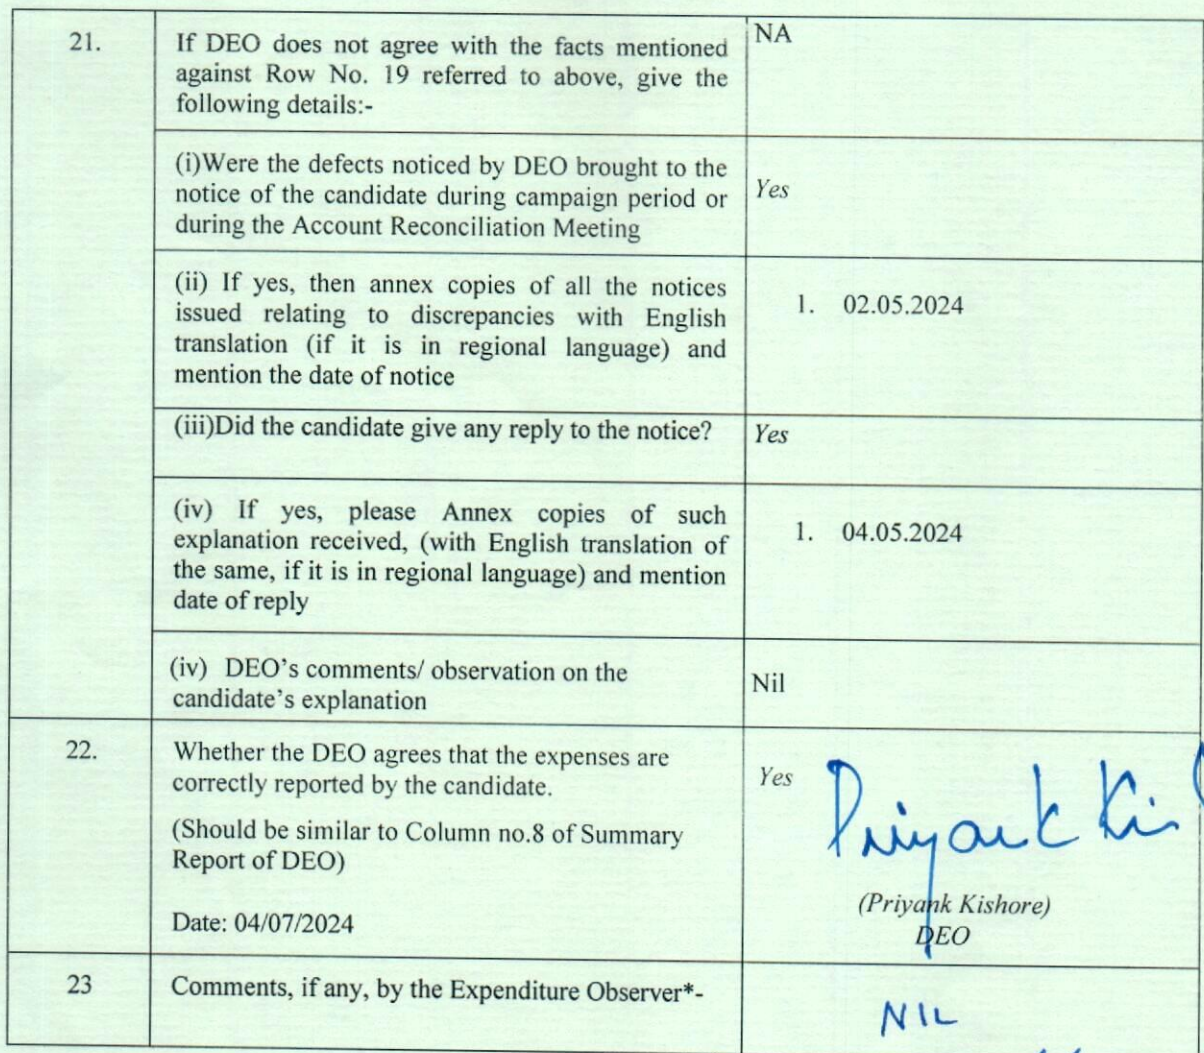 21.
If DEO does not agree with the facts mentioned
against Row No. 19 referred to above, give the
following details:-
NA
(i)Were the defects noticed by DEO brought to the
notice of the candidate during campaign period or
during the Account Reconciliation Meeting
Yes
(ii) If yes, then annex copies of all the notices
issued relating to discrepancies with English
translation (if it is in regional language) and
mention the date of notice
1. 02.05.2024
(iii)Did the candidate give any reply to the notice?
Yes
(iv) If yes, please Annex copies of such
explanation received, (with English translation of
the same, if it is in regional language) and mention
date of reply
1. 04.05.2024
(iv) DEO's comments/ observation on the
candidate's explanation
Nil
22.
Whether the DEO agrees that the expenses are
correctly reported by the candidate.
(Should be similar to Column no.8 of Summary
Report of DEO)
Date: 04/07/2024
Yes
Priyank Ki
(Priyank Kishore)
DEO
23
Comments, if any, by the Expenditure Observer*-
NIL